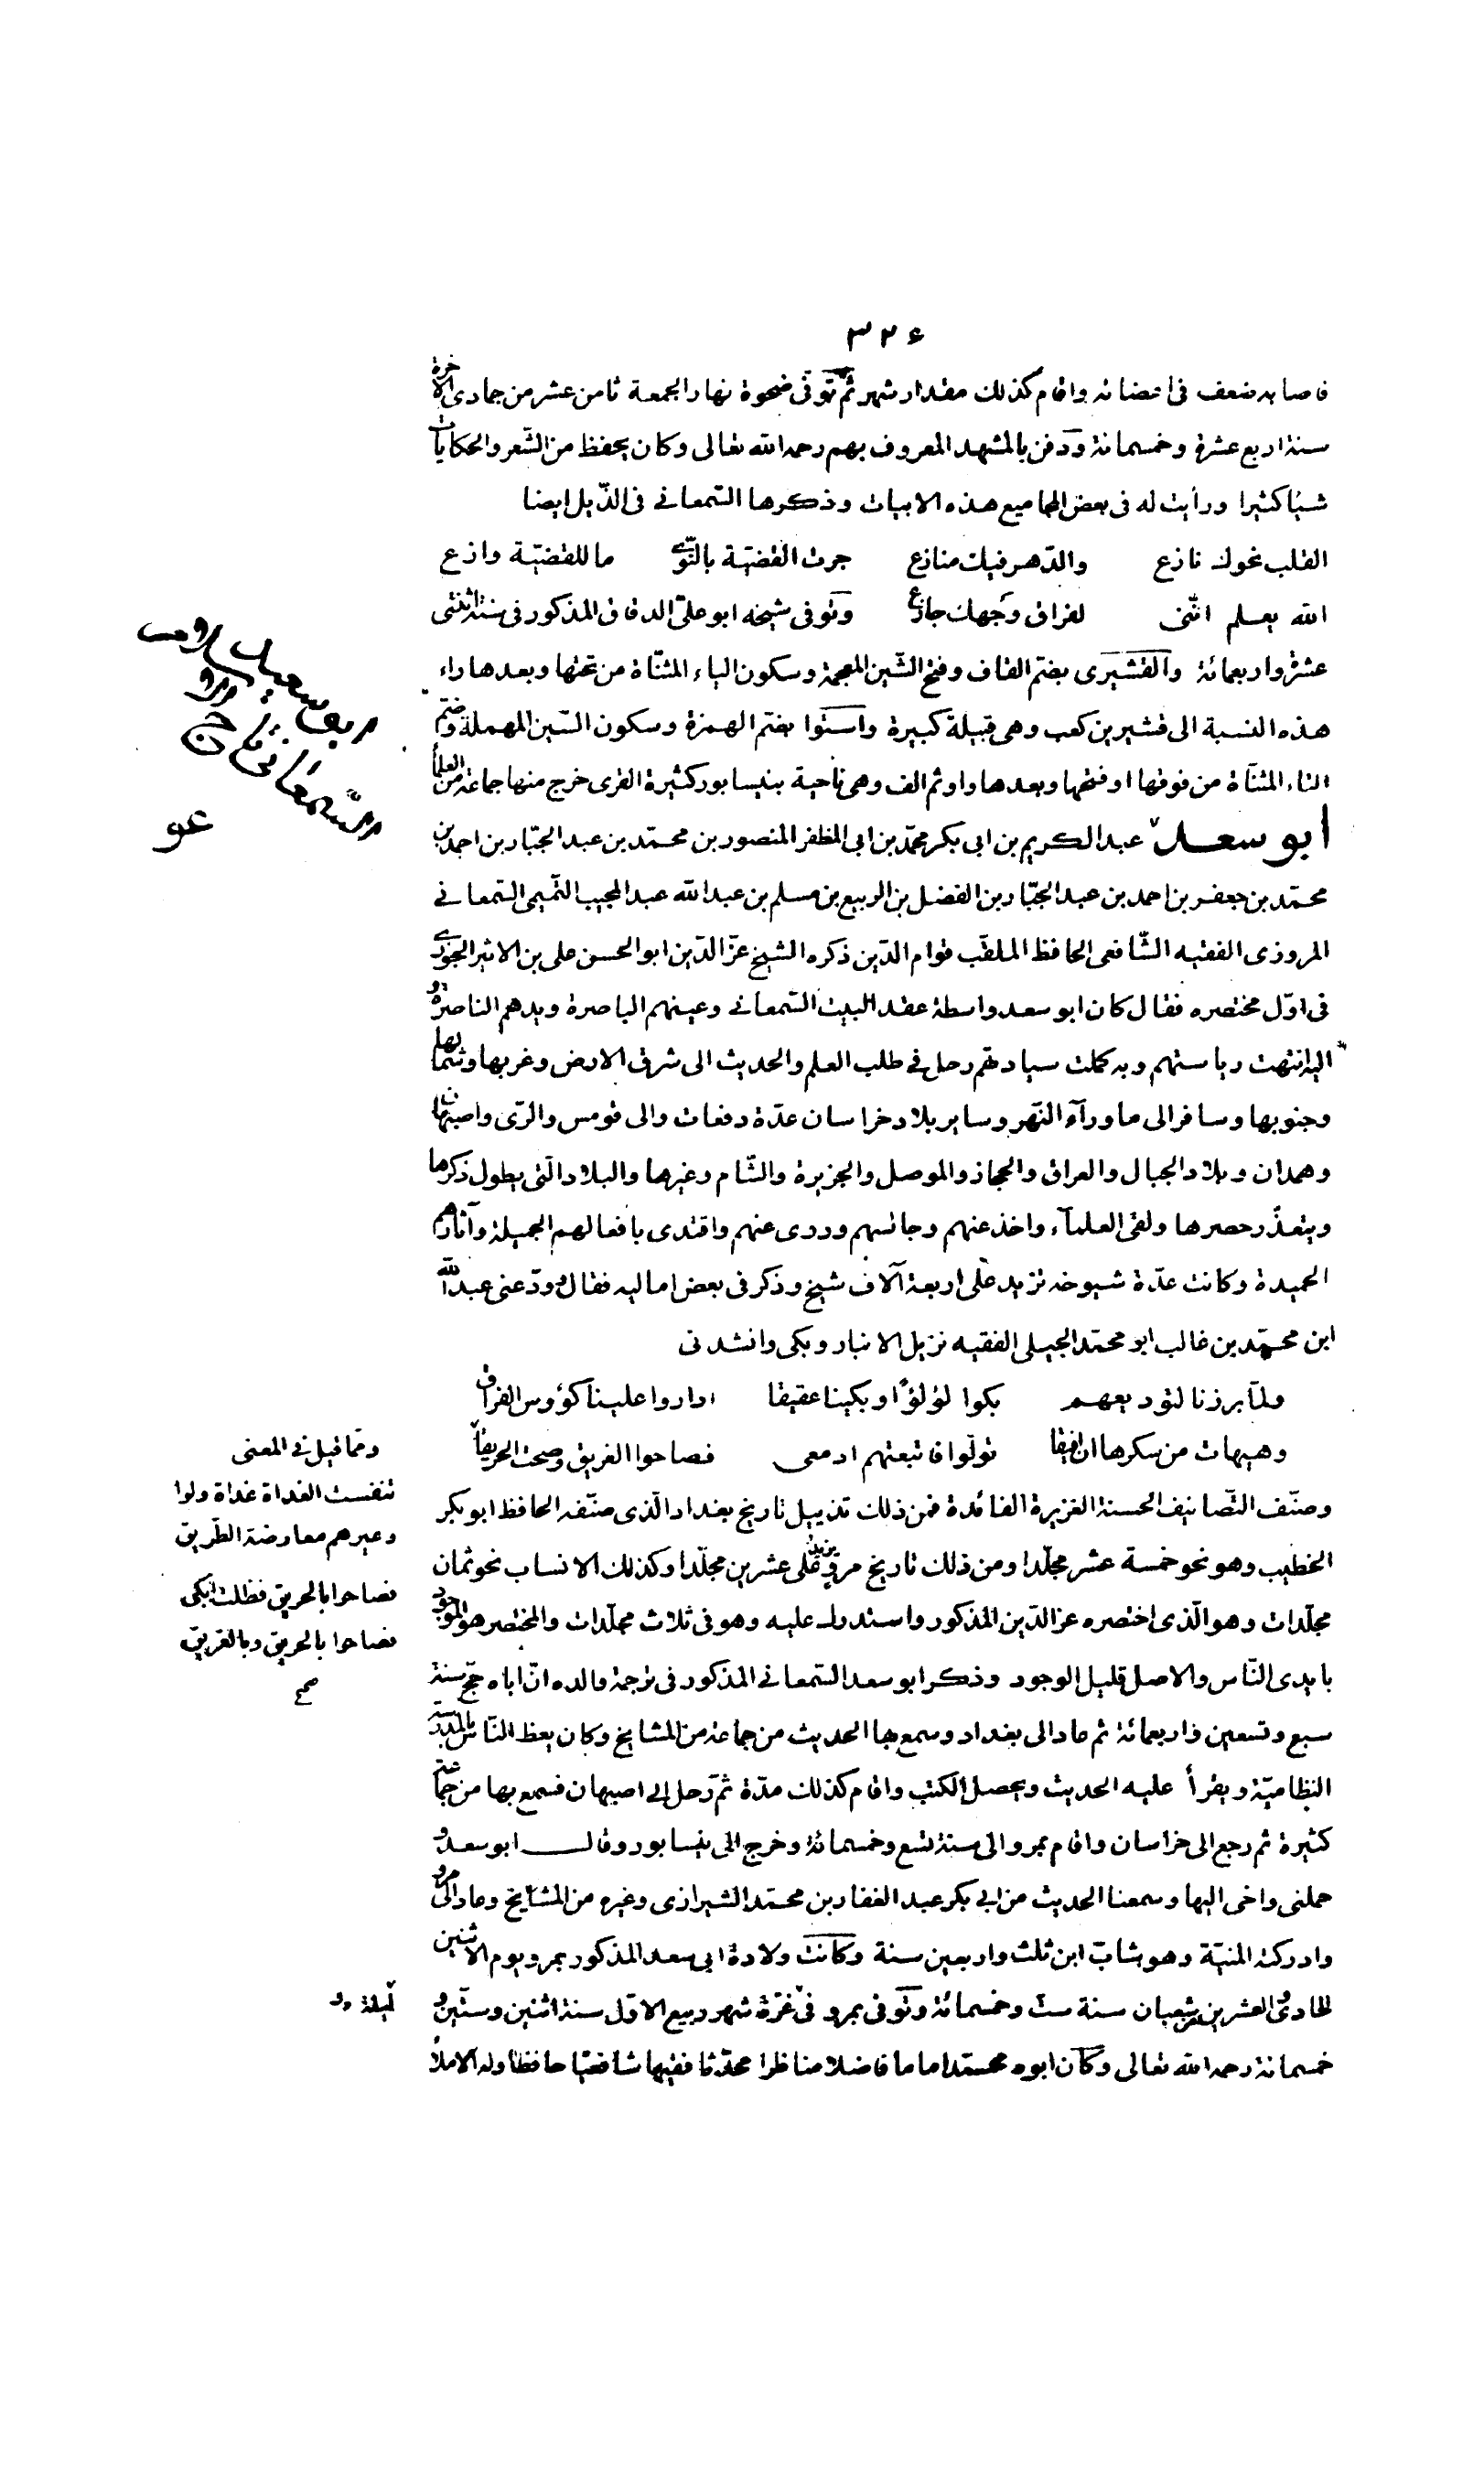 ٣٢٤
فاصابه ضعف فى اعضائه واقام كذلك مقدار شهر ثم توفى ضحوة نهار الجمعة ثامن عشر من جمادى الاخرة
سنة اربع عشرة وخمسمائة ودفن بالمشهد المعروف بهم رحمه الله تعالى وكان يحفظ من الشّعر والحكايات
شيئا كثيرا ورأيت له فى بعض المجاميع هذه الابيات وذكرها السّمعانى فى الذّيل ايضا
القلب نحوك نازع والدّهر فيك منازع جرت القضيّة بالنّوى ما للقضيّة وازع
الله يعلم انّنى لفراق وجهك جازع وتوفى شيخه ابو علىّ الدقاق المذكور فى سنة اثنتى
عشرة واربعمائة والقشيرى بضمّ القاف وفتح الشّين المعجمة وسكون الياء المثنّاة من تحتها وبعدها راء
هذه النسبة الى قشير بن كعب وهى قبيلة كبيرة واستوا بضمّ الهمزة وسكون السّين المهملة وضمّ
التاء المثنّاة من فوقها او فتحها وبعدها واو ثم الف وهى ناحية بنيسابور كثيرة القرى خرج منها جماعة من العلمأ
ابو سعد عبد الكريم بن ابى بكر محمّد بن ابى المظفر المنصور بن محمّد بن عبد الجبّار بن احمد بن
محمّد بن جعفر بن احمد بن عبد الجبّار بن الفضل بن الربيع بن مسلم بن عبد الله عبد المجيب التّميمى السّمعانى
المروزى الفقيه الشّافعى الحافظ الملقّب قوام الدّين ذكره الشيخ عزّ الدّين ابو الحسن على بن الاثير الجزرى
فى اوّل مختصره فقال كان ابو سعد واسطة عقد البيت السّمعانى وعينهم الباصرة ويدهم الناصرة و
اليه انتهت رياستهم وبه كملت سيادتهم رحل فى طلب العلم والحديث الى شرق الارض وغربها وشمالها
وجنوبها وسافر الى ما ورآء النّهر وساير بلاد خراسان عدّة دفعات والى قومس والرّى واصبهان
وهمدان وبلاد الجبال والعراق والحجاز والموصل والجزيرة والشّام وغيرها والبلاد الّتى يطول ذكرها
ويتعذّر حصرها ولقى العلمآء واخذ عنهم وجالسهم وروى عنهم واقتدى بافعالهم الجميلة وآثارهم
الحميدة وكانت عدّة شيوخه تزيد على اربعة آلاف شيخ وذكر فى بعض اماليه فقال ودّعنى عبد الله
ابن محمّد بن غالب ابو محمّد الجيلى الفقيه نزيل الانبار وبكى وانشدنى
ولمّا برزنا لتوديعهم بكوا لؤلؤًا وبكينا عقيقا اداروا علينا كؤوس الفراق
وهيهات من سكرها ان افيقا تولّوا فاتبعتهم ادمعى فصاحوا الغريق وصحت الحريقا
وصنّف التّصانيف الحسنة الغزيرة الفائدة فمن ذلك تذييل تاريخ بغداد الّذى صنّفه الحافظ ابو بكر
الخطيب وهو نحو خمسة عشر مجلّدا ومن ذلك تاريخ مرو يزيد على عشرين مجلّدا وكذلك الانساب نحو ثمان
مجلّدات وهو الّذى اختصره عزّ الدّين المذكور واستدرك عليه وهو فى ثلاث مجلّدات والمختصر هو الموجود
بايدى النّاس والاصل قليل الوجود وذكر ابو سعد السّمعانى المذكور فى ترجمة والده انّ اباه حجّ سنة
سبع وتسعين واربعمائة ثم عاد الى بغداد وسمع بها الحديث من جماعة من المشايخ وكان يعظ النّاس بالمدرسة
النظاميّة ويقرأ عليه الحديث ويحصل الكتب واقام كذلك مدّة ثم رحل الى اصبهان فسمع بها من جماعة
كثيرة ثم رجع الى خراسان واقام بمرو الى سنة تسع وخمسمائة وخرج الى نيسابور وقال ابو سعد و
حملنى واخى اليها وسمعنا الحديث من ابى بكر عبد الغفار بن محمّد الشيرازى وغيره من المشايخ وعاد الى مرو
وادركته المنيّة وهو شابّ ابن ثلث واربعين سنة وكانت ولادة ابى سعد المذكور بمرو يوم الاثنين
الحادى والعشرين من شعبان سنة ستّ وخمسمائة وتوفى بمرو فى غرّة شهر ربيع الاوّل سنة اثنين وستّين و
خمسمائة رحمه الله تعالى وكان ابوه محمّد اماما فاضلا مناظرا محدّثا فقيها شافعيّا حافظا وله الاملأ
ابو سعيد
السّمعانى
وممّا قيل فى المعنى
تنفست الغداة غداة ولوا
وعيرهم معارضة الطّريق
فصاحوا بالحريق فظلت ابكى
فصاحوا بالحريق وبالغريق
صح
ليلة